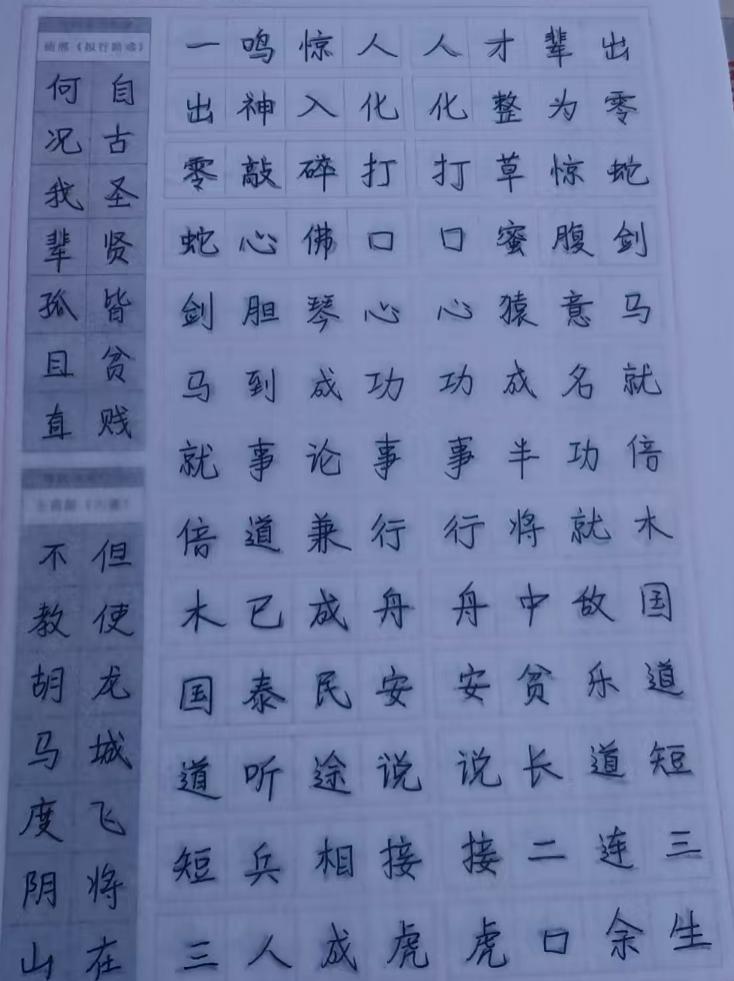 自古圣贤皆贫贱
何况我辈孤且直
但使龙城飞将在
不教胡马度阴山
一鸣惊人 人才辈出
出神入化 化整为零
零敲碎打 打草惊蛇
蛇心佛口 口蜜腹剑
剑胆琴心 心猿意马
马到成功 功成名就
就事论事 事半功倍
倍道兼行 行将就木
木已成舟 舟中敌国
国泰民安 安贫乐道
道听途说 说长道短
短兵相接 接二连三
三人成虎 虎口余生